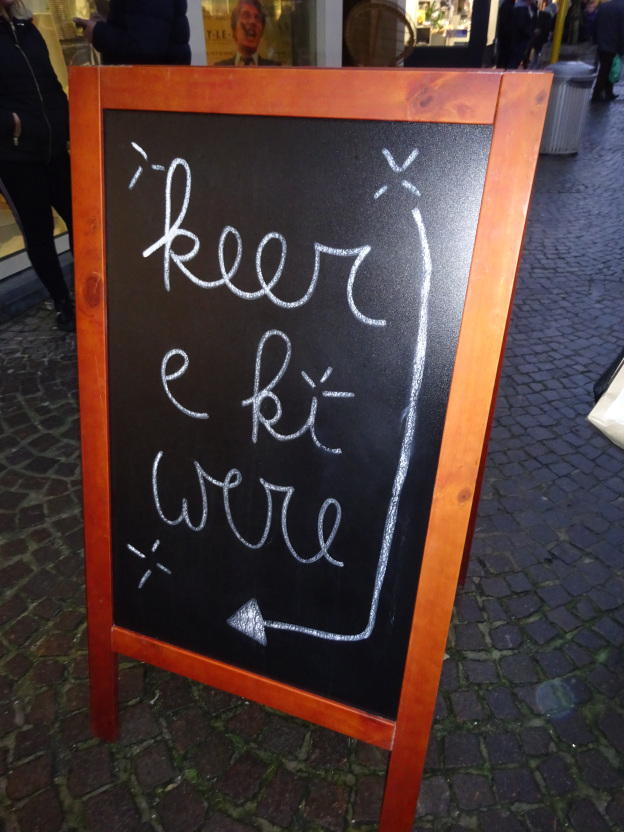 keer
e ki
were